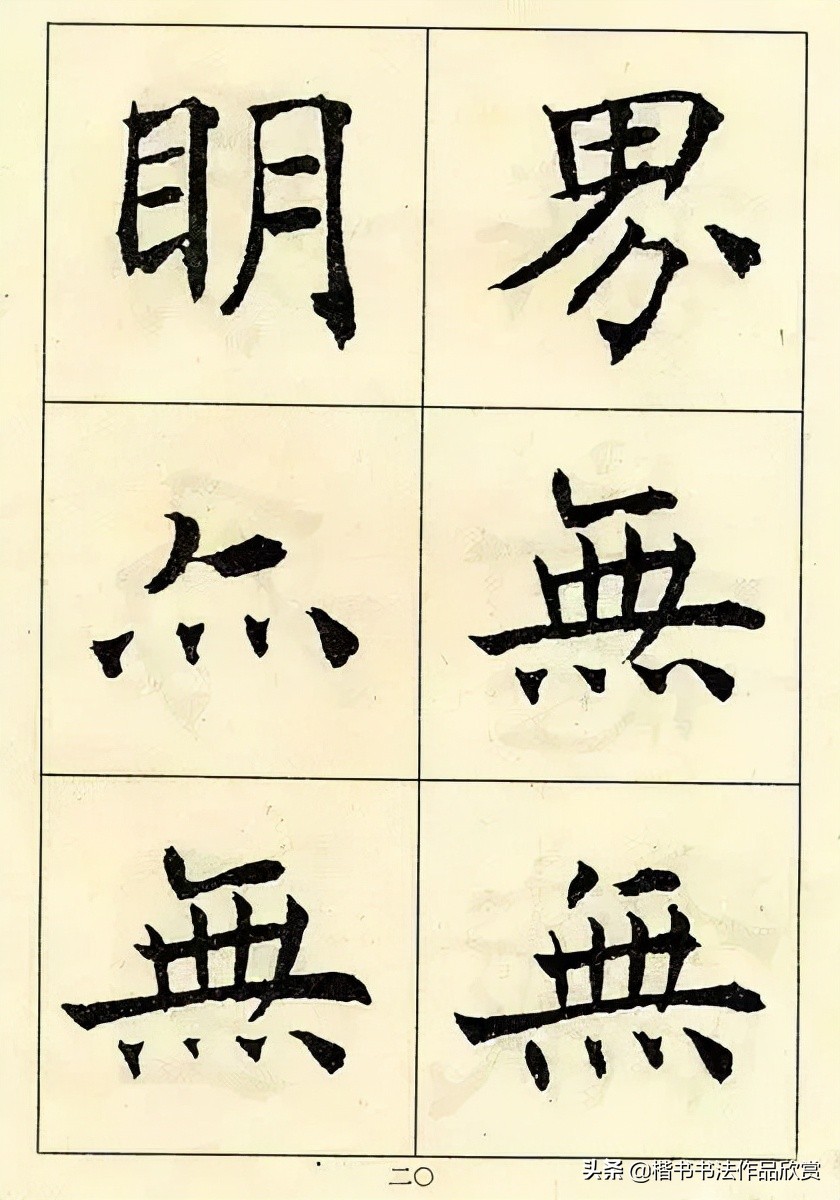 界無無
明亦無
二〇
头条 @楷书书法作品欣赏